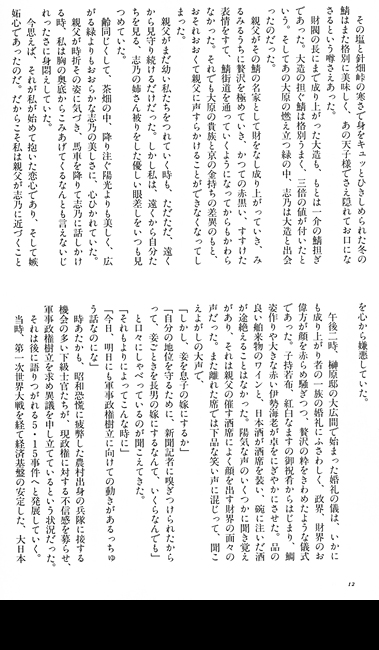 その塩と針畑峠の寒さで身をキュッとひきしめられた冬の
鯖はまた格別に美味しく、あの天子様でさえ隠れてお口にな
さるという噂さえあった。
財閥の長にまで成り上がった大造も、もとは一介の鯖担ぎ
であった。大造の担ぐ鯖は格別うまく、三倍の値が付いたと
いう。そしてあの大原の燃え立つ緑の中、志乃は大造と出会
ったのだった。
親父がその鯖の名家として財をなし成り上がっていき、み
るみるうちに贅沢を極めていき、かつての赤黒い、すすけた
表情をすて、鯖街道を通っていくようになってからもかわら
なかった。それでも大原の貴族と京の金持ちの差異のもと、
おそれおおくて親父に声すらかけることができなくなってし
まった。
親父がまだ幼い私たちをつれていく時も、ただただ、遠く
から見守り続けるだけだった。しかし私は、遠くから自分た
ちを見る、志乃の姉さん被りをした優しい眼差しをいつも見
つめていた。
齢同じくして、茶畑の中、降り注ぐ陽光よりも美しく、広
がる緑よりもおおらかな志乃の美しさに、心ひかれていた。
親父が時折その姿に気づき、馬車を降りて志乃に話しかけ
る時、私は胸の奥底からこみあげてくるなんとも言えないじ
れったさに身悶えしていた。
今思えば、それが私が始めて抱いた恋心であり、そして嫉
妬心であったのだ。だからこそ私は親父が志乃に近づくこと
を心から嫌悪していた。
午後二時、榊原邸の大広間で始まった婚礼の儀は、いかに
も成り上がり者の一族の婚礼にふさわしく、政界、財界のお
偉方が顔を赤らめ騒ぎつつ、贅沢の粋をきわめたような儀式
であった。子持若布、紅白なますの御祝肴からはじまり、鯛
姿作りや大きな赤い伊勢海老が卓をにぎやかにさせた。品の
良い舶来物のワインと、日本酒が酒席を装い、碗に注いだ酒
が途絶えることはなかった。陽気な声のいくつかに聞き覚え
があり、それは親父の催す酒席によく顔を出す財界の面々の
声だった。また離れた席では下品な笑い声に混じって、聞こ
えよがしの大声で、
「しかし、妾を息子の嫁にするか」
「自分の地位を守るために、新聞記者に嗅ぎつけられたから
って、妾ごときを長男の嫁にするなんて、いくらなんでも」
と口々にしゃべっているのが聞こえてきた。
「それもよりによってこんな時に」
「今日、明日にも軍事政権樹立に向けての動きがあるっちゅ
う話なのにな」
時あたかも、昭和恐慌に疲弊した農村出身の兵隊に接する
機会の多い下級士官たちが、現政権に対する不信感を募らせ、
軍事政権樹立を求め異議を申し立てているという状況だった。
それは後に語りつがれる5・15事件へと発展していく。
当時、第一次世界大戦を経て経済基盤の安定した、大日本
12